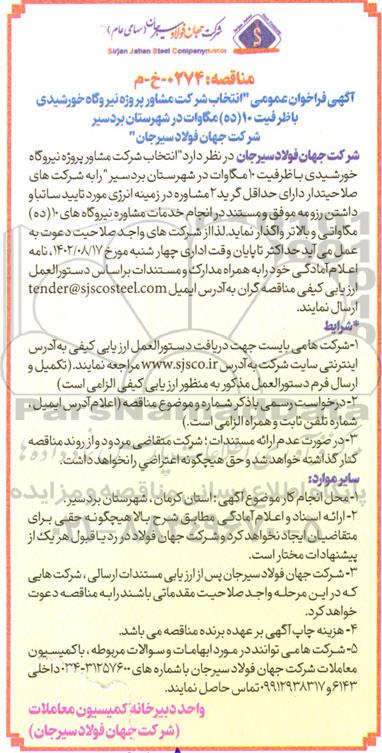 شرکت جهان فولاد سیرجان (سهامی عام)
Sirjan Jahan Steel Company
مناقصه: ۰۲۷۴-خ-م
آگهی فراخوان عمومی "انتخاب شرکت مشاور پروژه نیروگاه خورشیدی
باظرفیت ۱۰ (ده) مگاوات در شهرستان بردسیر
شرکت جهان فولاد سیرجان"
شرکت جهان فولاد سیرجان در نظر دارد "انتخاب شرکت مشاور پروژه نیروگاه
خورشیدی باظرفیت ۱۰ مگاوات در شهرستان بردسیر" را به شرکت های
صلاحیتدار دارای حداقل گرید ۲ مشاوره در زمینه انرژی مورد تایید ساتبا و
داشتن رزومه موفق و مستند در انجام خدمات مشاوره نیروگاه های ۱۰ (ده)
مگاواتی و بالاتر واگذار نماید. لذا از شرکت های واجد صلاحیت دعوت به
عمل می آید حداکثر تا پایان وقت اداری چهار شنبه مورخ ۱۴۰۲/۰۸/۱۷، نامه
اعلام آمادگی خود را به همراه مدارک و مستندات بر اساس دستورالعمل
ارزیابی کیفی مناقصه گران به آدرس ایمیل tender@sjscosteel.com
ارسال نمایند.
*شرایط
۱-شرکت ها می بایست جهت دریافت دستورالعمل ارزیابی کیفی به آدرس
اینترنتی سایت شرکت به آدرس www.sjsco.ir مراجعه نمایند. (تکمیل و
ارسال فرم دستورالعمل مذکور به منظور ارزیابی کیفی الزامی است)
۲-درخواست رسمی با ذکر شماره و موضوع مناقصه (اعلام آدرس ایمیل،
شماره تلفن ثابت و همراه الزامی است.)
۳-در صورت عدم ارائه مستندات؛ شرکت متقاضی مردود و از روند مناقصه
کنار گذاشته خواهد شد و حق هیچگونه اعتراضی را نخواهد داشت.
سایر موارد:
۱- محل انجام کار موضوع آگهی: استان کرمان، شهرستان بردسیر.
۲- ارائه اسناد و اعلام آمادگی مطابق شرح بالا هیچگونه حقی برای
متقاضیان ایجاد نخواهد کرد و شرکت جهان فولاد در رد یا قبول هر یک از
پیشنهادات مختار است.
۳- شرکت جهان فولاد سیرجان پس از ارزیابی مستندات ارسالی، شرکت هایی
که در این مرحله واجد صلاحیت مقدماتی باشند را به مناقصه دعوت
خواهد کرد.
۴- هزینه چاپ آگهی بر عهده برنده مناقصه می باشد.
۵- شرکت ها می توانند در مورد ابهامات و سوالات مربوطه، با کمیسیون
معاملات شرکت جهان فولاد سیرجان با شماره های ۳۱۲۵۷۶۰۰-۰۳۴ داخلی
۶۱۴۳ و ۰۹۹۱۲۹۳۸۳۱۷ تماس حاصل نمایند.
واحد دبیرخانه کمیسیون معاملات
(شرکت جهان فولاد سیرجان)